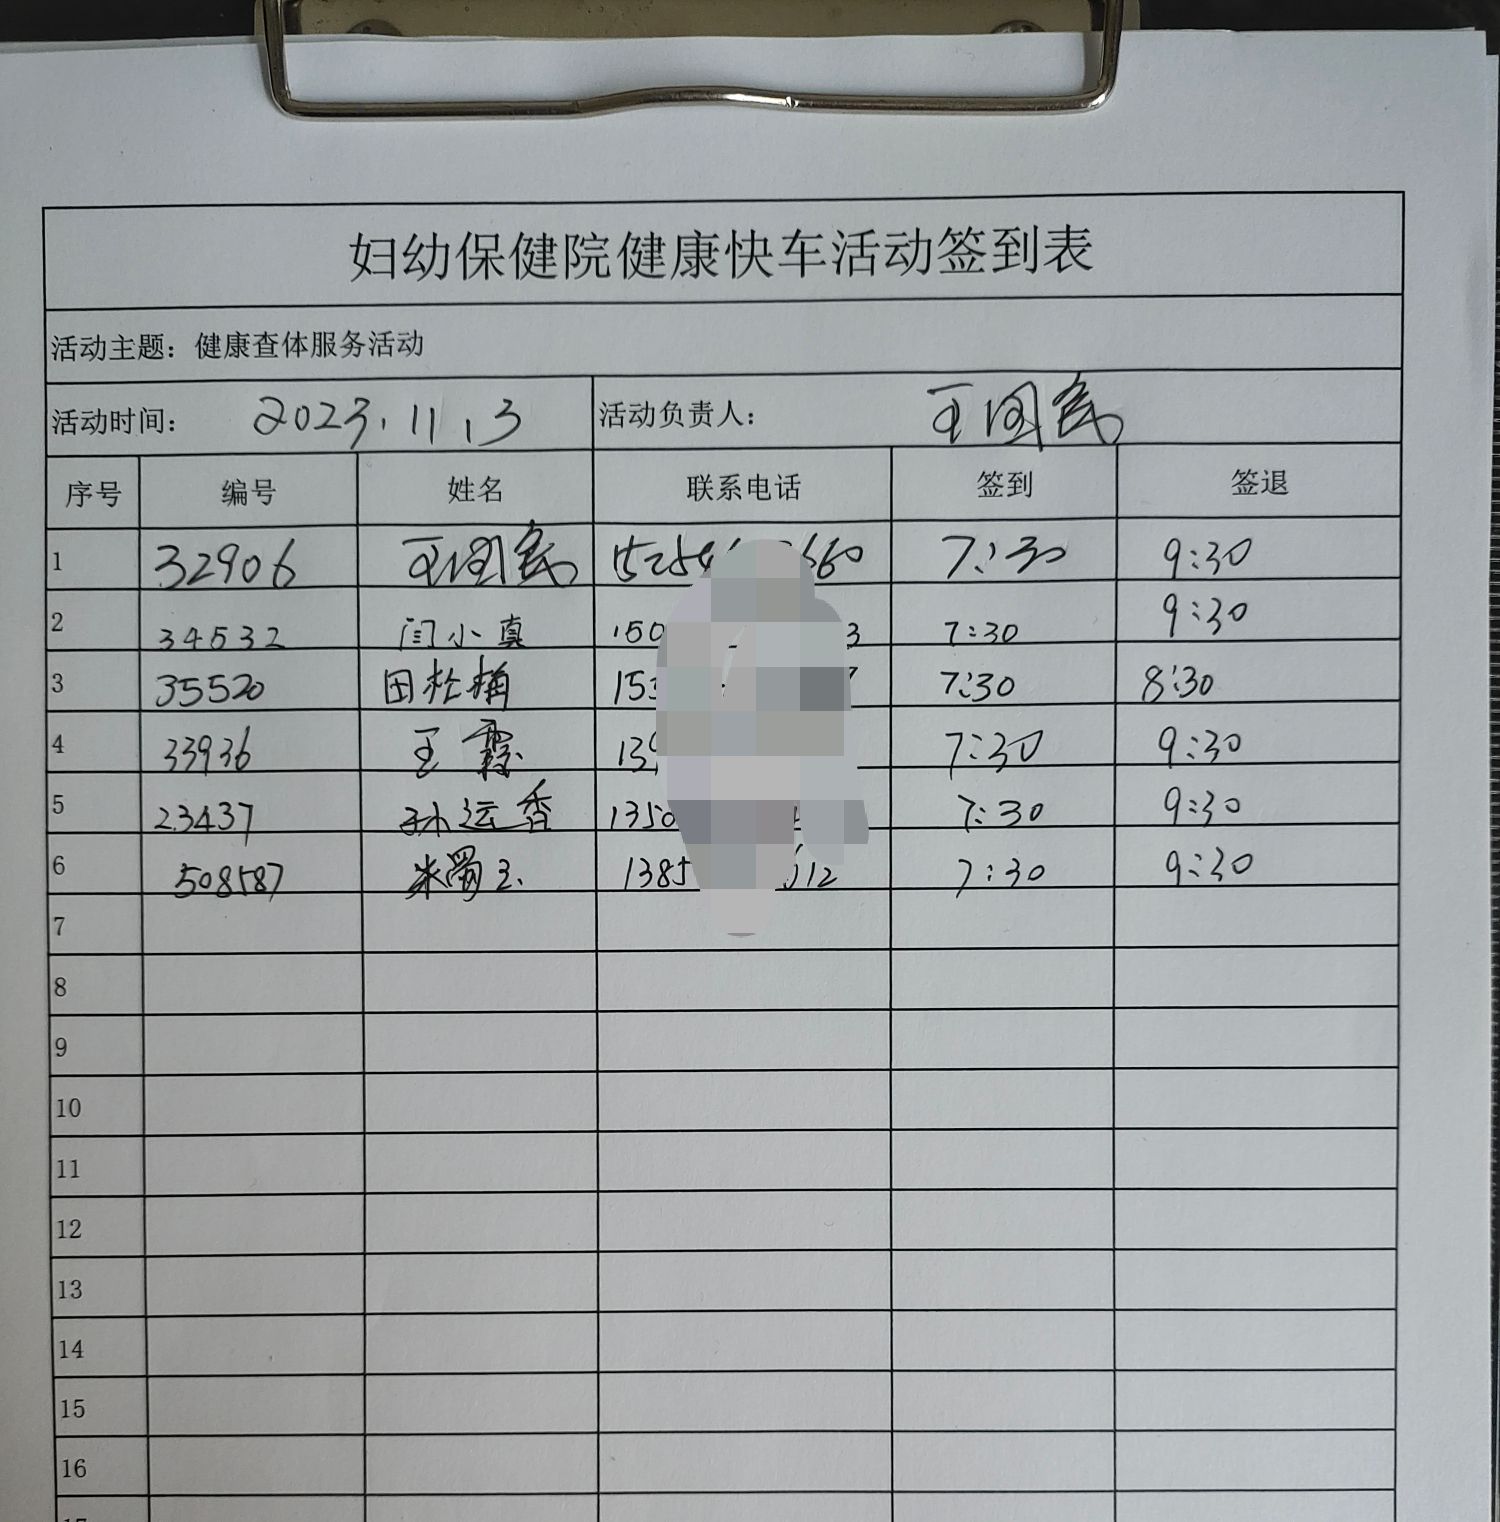 妇幼保健院健康快车活动签到表
活动主题：健康查体服务活动
活动时间： 2023.11.3 活动负责人： 王国民
序号 编号 姓名 联系电话 签到 签退
1 32906 王国民 7:30 9:30
2 34532 闫小真 150 3 7:30 9:30
3 35520 田松梅 153 7:30 8:30
4 33936 王霖 139 7:30 9:30
5 23437 孙运香 1350 7:30 9:30
6 508587 1385 612 7:30 9:30
7
8
9
10
11
12
13
14
15
16